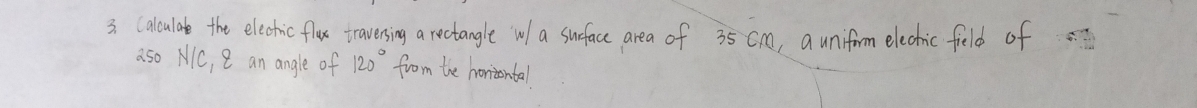 3. Calculate the electric flux traversing a rectangle w/ a surface area of 35 cm, a uniform electric field of
250 N/C, & an angle of 120° from the horizontal